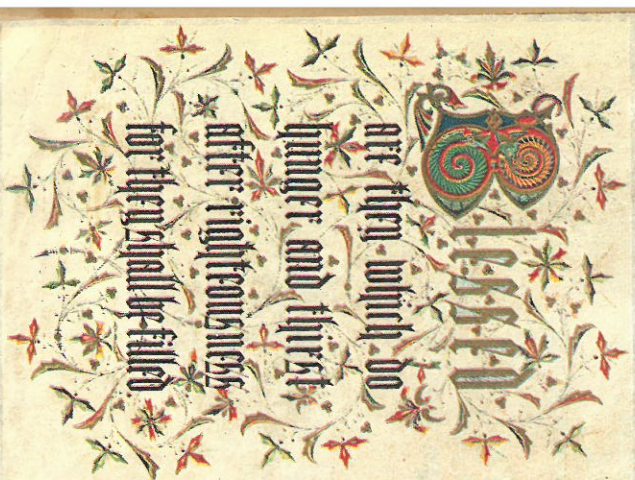 Blessed
are they which do
hunger and thirst
after righteousness
for they shall be filled